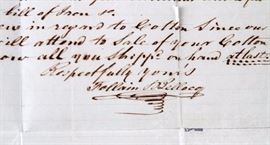 bill of Iron &c
in regard to Cotton Since our
will attend to Sale of your Cotton
now all you Shipp^d on hand at last
Respectfully yours
Follain &